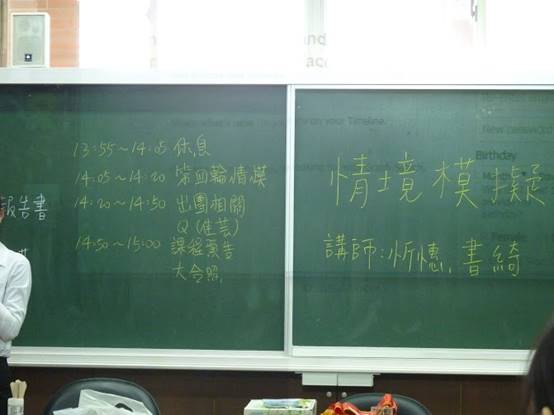 報告書
13:55～14:05 休息
14:05～14:20 第四輪情模
14:20～14:50 出團相關
Q(佳芸)
14:50～15:00 課程預告
大合照
情境模擬
講師:忻憓,書綺
on your Timeline.
New password
Birthday